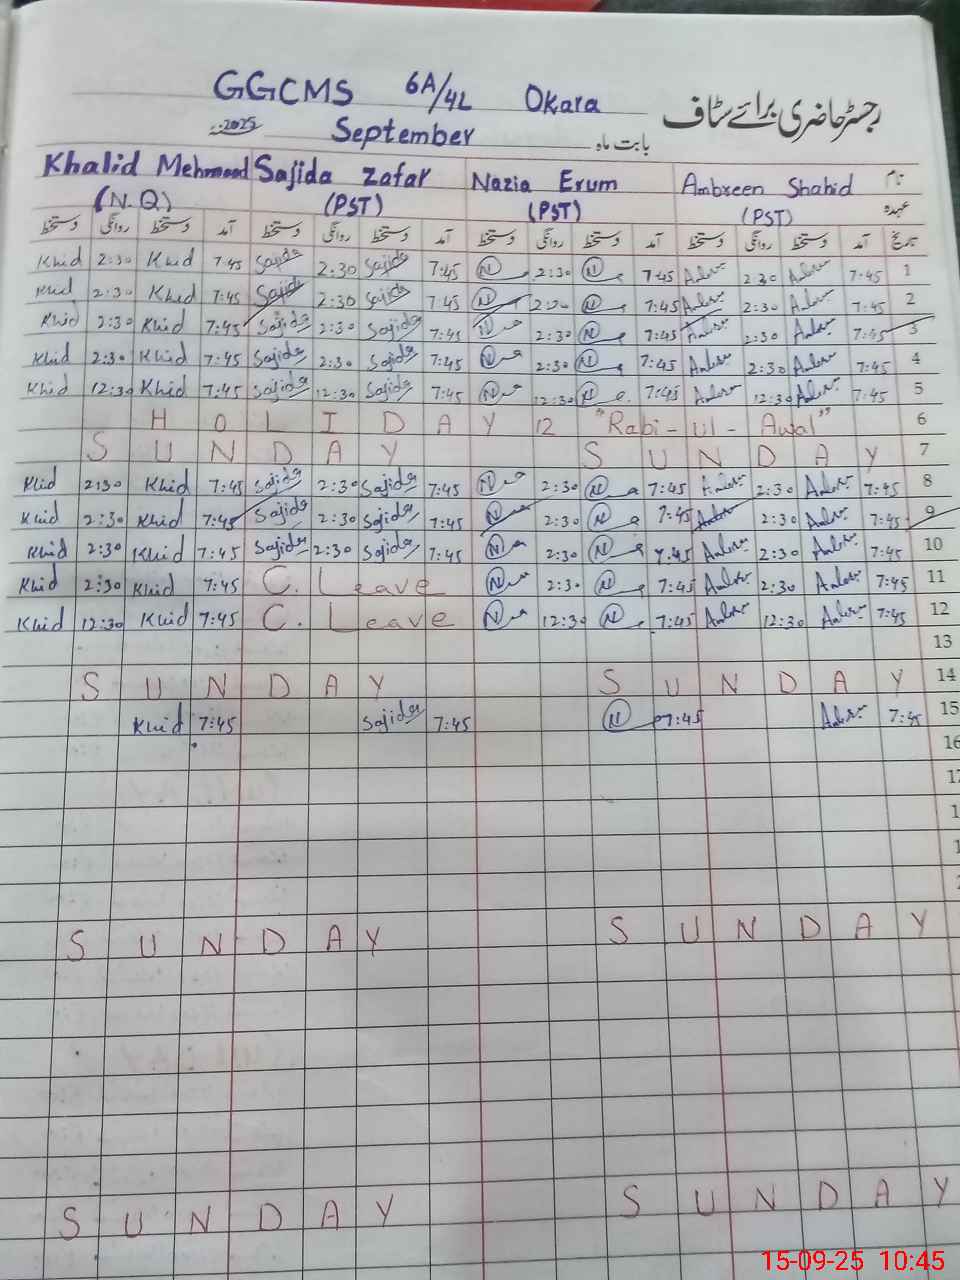 GGCMS 6A/4L Okara رجسٹر حاضری برائے سٹاف
2025 September بابت ماہ
Khalid Mehmood Sajida Zafar Nazia Erum Ambreen Shahid نام
(N.Q) (PST) (PST) (PST) عہدہ
دستخط روانگی دستخط آمد دستخط روانگی دستخط آمد دستخط روانگی دستخط آمد دستخط روانگی دستخط آمد تاریخ
Khid 2:30 Khid 7:45 Sajida 2:30 Sajida 7:45 N 2:30 N 7:45 2:30 7:45 1
Khid 2:30 Khid 7:45 Sajida 2:30 Sajida 7:45 N N 7:45 2:30 7:45 2
Khid 2:30 Khid 7:45 Sajida 2:30 Sajida 7:45 N 2:30 N 7:45 2:30 7:45 3
Khid 2:30 Khid 7:45 Sajida 2:30 Sajida 7:45 N 2:30 N 7:45 2:30 7:45 4
Khid 12:30 Khid 7:45 Sajida 12:30 Sajida 7:45 N 12:30 N 7:45 12:30 7:45 5
HOLIDAY 12 "Rabi-ul-Awal" 6
SUNDAY SUNDAY 7
Khid 2:30 Khid 7:45 Sajida 2:30 Sajida 7:45 N 2:30 N 7:45 2:30 7:45 8
Khid 2:30 Khid 7:45 Sajida 2:30 Sajida 7:45 N 2:30 N 7:45 2:30 7:45 9
Khid 2:30 Khid 7:45 Sajida 2:30 Sajida 7:45 N 2:30 N 7:45 2:30 7:45 10
Khid 2:30 Khid 7:45 C. Leave N 2:30 N 7:45 2:30 7:45 11
Khid 12:30 Khid 7:45 C. Leave N 12:30 N 7:45 12:30 7:45 12
13
SUNDAY SUNDAY 14
Khid 7:45 Sajida 7:45 N 7:45 7:45 15
16
SUNDAY SUNDAY
SUNDAY SUNDAY
15-09-25 10:45